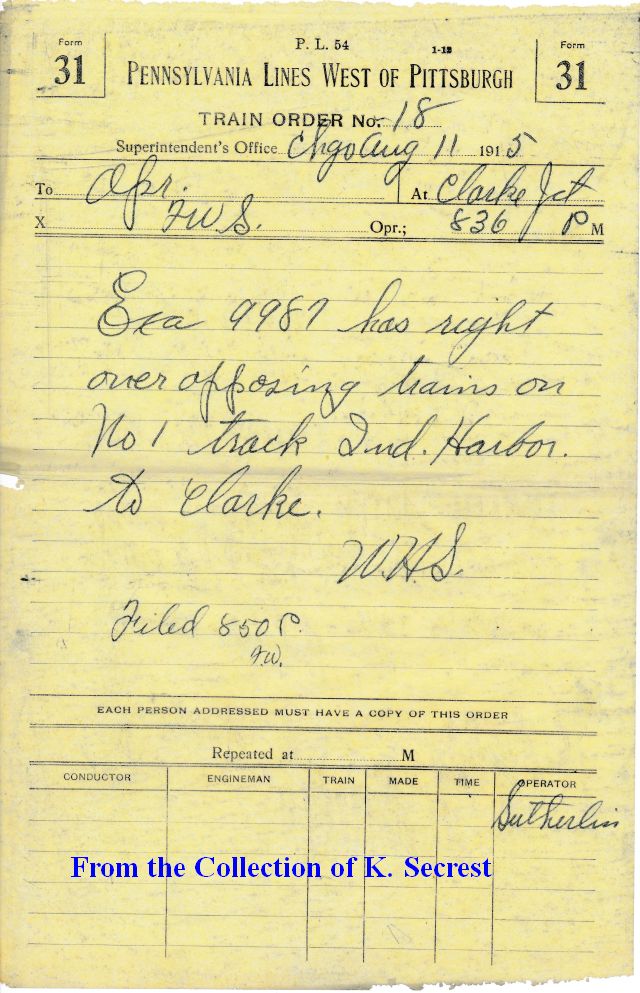 Form 31
P. L. 54
1-12
Form 31
PENNSYLVANIA LINES WEST OF PITTSBURGH
TRAIN ORDER No. 18
Superintendent's Office Chgo Aug 11 1915
To Opr. At Clarke Jct
X F.W.S. Opr.; 836 P M
Exa 9987 has right
over opposing trains on
No 1 track Ind. Harbor.
to Clarke.
W.H.S.
Filed 850 P.
F.W.
EACH PERSON ADDRESSED MUST HAVE A COPY OF THIS ORDER
Repeated at M
CONDUCTOR ENGINEMAN TRAIN MADE TIME OPERATOR
Sutherlin
From the Collection of K. Secrest